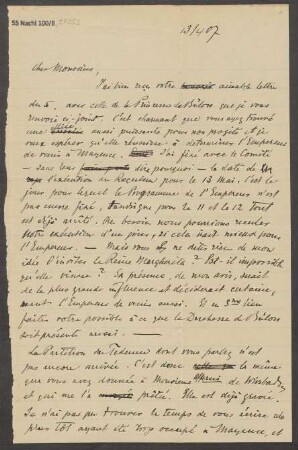 55 Nachl 100/B,
13/4 07
Cher Monsieur,
J'ai bien reçu votre aimable lettre
du 5, avec celle de la Princesse de Bülow que je vous
renvoie ci-joint. C'est charmant que vous ayez trouvé
une aussi puissante pour nos projets et je
veux espérer qu'elle réussira à déterminer l'Empereur
de venir à Mayence. J'ai fixé avec le Comité
— sans leur dire pourquoi — la date de
l'exécution du Requiem pour le 13 Mai. C'est le
jour pour lequel le Programme de l'Empereur n'est pas
encore fixé, tandisque pour le 11 et le 12 tout
est déjà arrêté. Au besoin nous pourrions reculer
notre exécution d'un jour, si cela était mieux pour
l'Empereur. — Mais vous ne dites rien de mon
idée d'inviter la Reine Margherita? Est-il impossible
qu'elle vienne? Sa présence, de mon avis, serait
de la plus grande influence et déciderait certaine-
ment l'Empereur de venir aussi. Et en 3me lieu
faites votre possible à ce que la Duchesse d'Albany
soit présente aussi. —
La Partition du Tedeum dont vous parlez n'est
pas encore arrivée. C'est donc la même
que vous avez donnée à Monsieur de Wiesbaden
et qui me l'a prêtée. Elle est déjà gravée.
Je n'ai pas pu trouver le temps de vous écrire
plus tôt ayant été trop occupé à Mayence, et